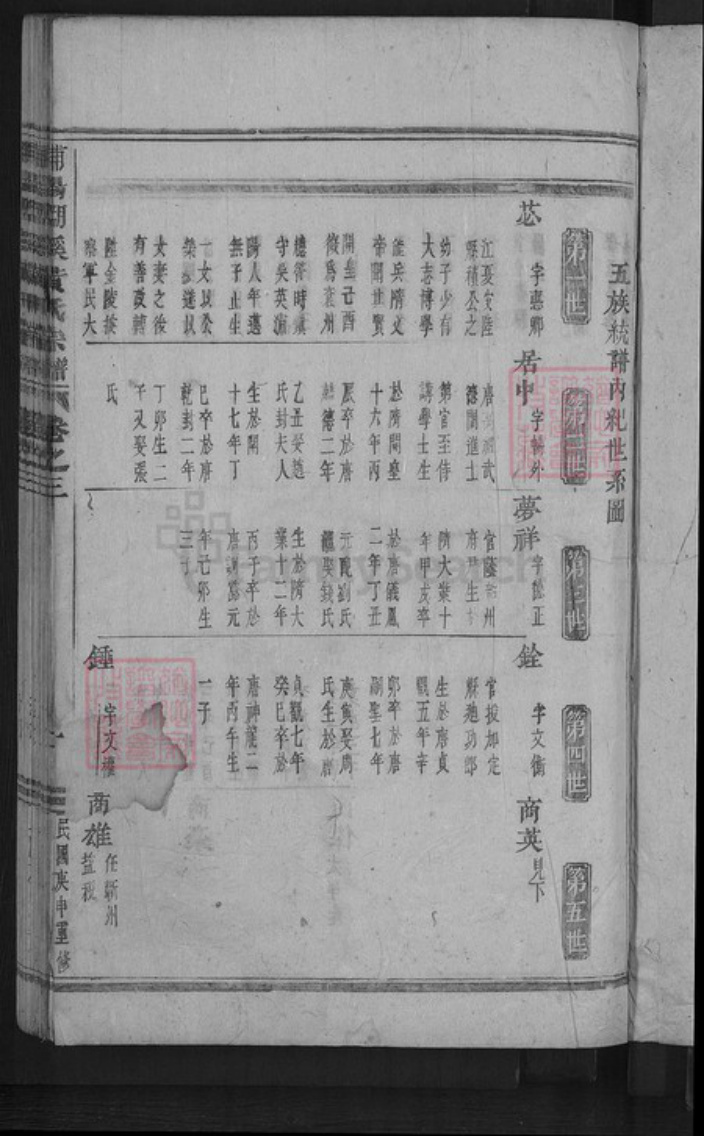 五族統譜內紀世系圖
第一世
第二世
第三世
第四世
第五世
苾
字惠卿
江夏安陸
縣積公之
幼子少有
大志博學
從兵隋文
帝開世賢
開皇己酉
後為袁州
總管時滇
守吳英
陽人年邁
無子止生
一女以
女妻之後
有善政轉
陞金陵
察軍民大
居中
字暢外
唐 武
德間進士
第官至侍
講學士生
於隋開皇
十六年丙
辰卒於唐
麟德二年
乙丑娶趙
氏封夫人
生於開
十七年丁
巳卒於唐
乾封二年
丁卯生二
子又娶張
氏
夢祥
字 正
官陵 州
府 生
隋大業十
年甲戌卒
於唐儀鳳
二年丁丑
元配劉氏
繼娶錢氏
生於隋大
業十二年
丙子卒於
唐調露元
年己卯生
三子
銓
字文衡
官授加定
縣 功郎
生於唐貞
觀五年辛
卯卒於唐
嗣聖七年
庚寅娶周
氏生於唐
貞觀七年
癸巳卒於
唐神龍二
年丙午生
一子
鍾
字文權
商英
見下
商雄
任蘄州
益稷
浦陽 溪黃氏宗譜
卷之三
一
民國庚申重修
FamilySearch